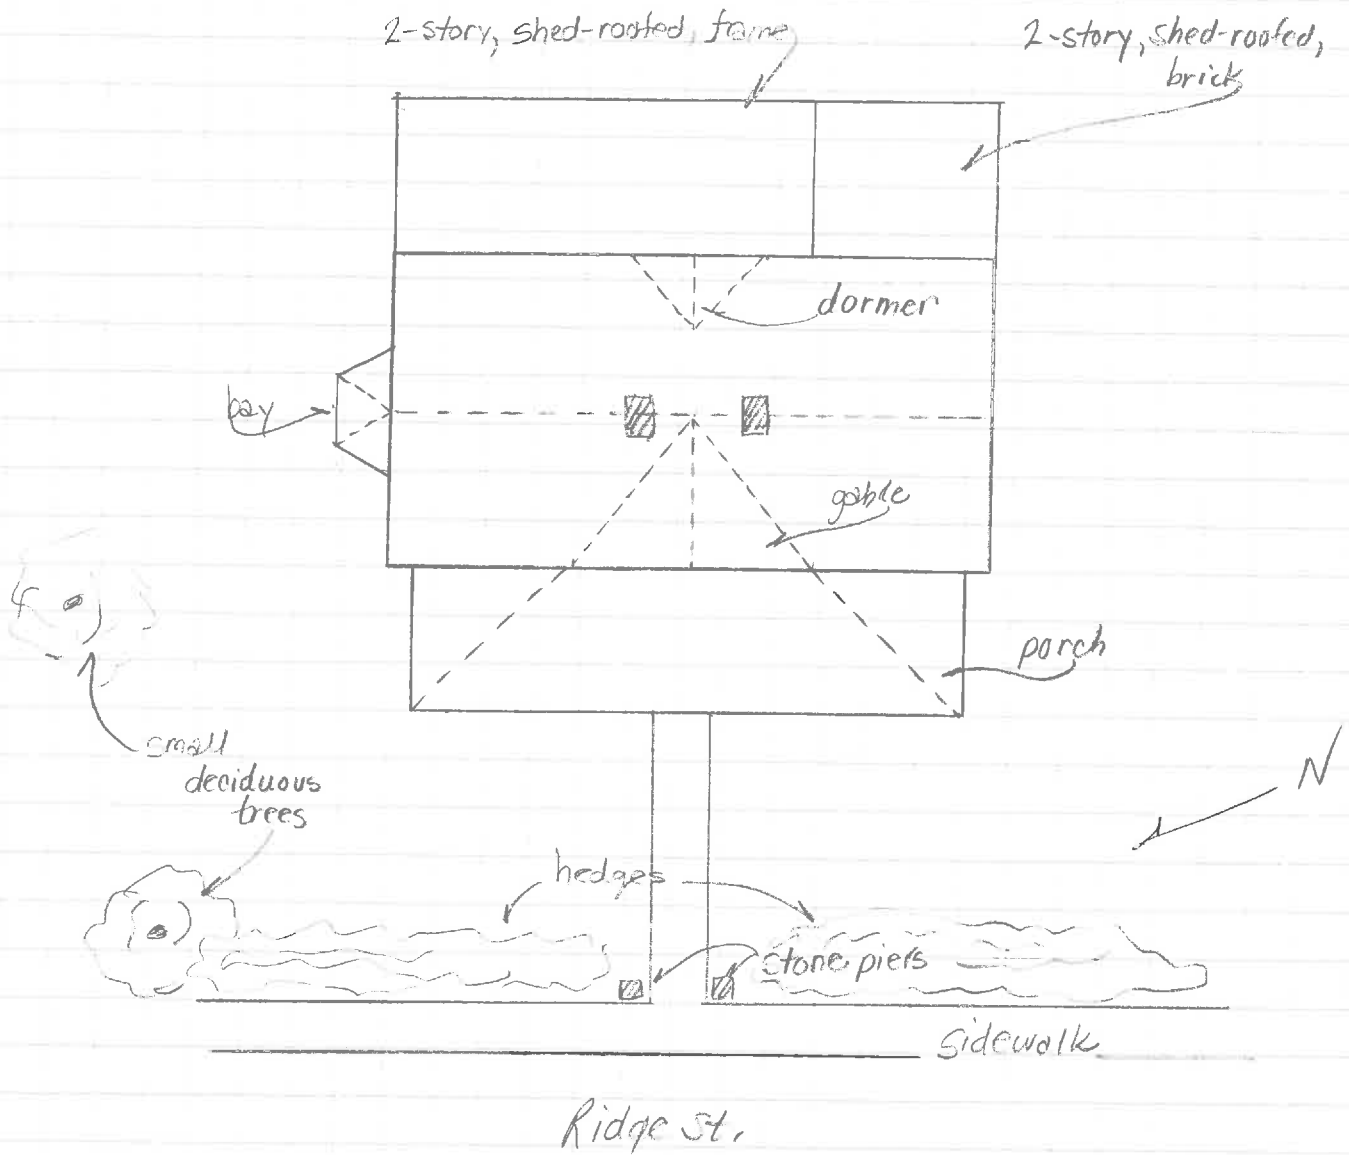 2-story, shed-roofed, frame
2-story, shed-roofed,
brick
dormer
bay
gable
porch
small
deciduous
trees
N
hedges
stone piers
sidewalk
Ridge St.